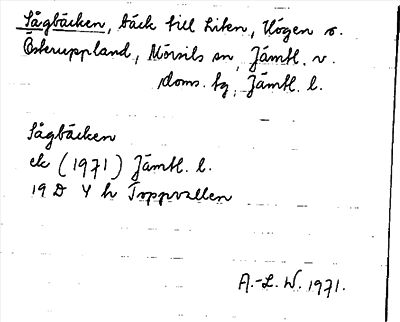 Sågbäcken, bäck till Liten, Högen o.
Österuppland, Mörsils sn, Jämtl. v.
doms. tg, Jämtl. l.
Sågbäcken
ek (1971) Jämtl. l.
19 D 4 h Toppvallen
A.-L. W. 1971.